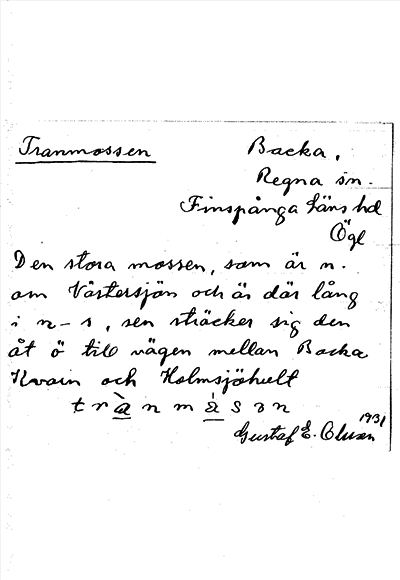 Tranmossen
Backa,
Regna sn.
Finspånga läns hd
Ögl
Den stora mossen, som är n.
om Västersjön och är där lång
i n-s, sen sträcker sig den
åt ö till vägen mellan Backa
Kvarn och Holmsjöhult
trànmåsɔn
1931
Gustaf E. Olsson